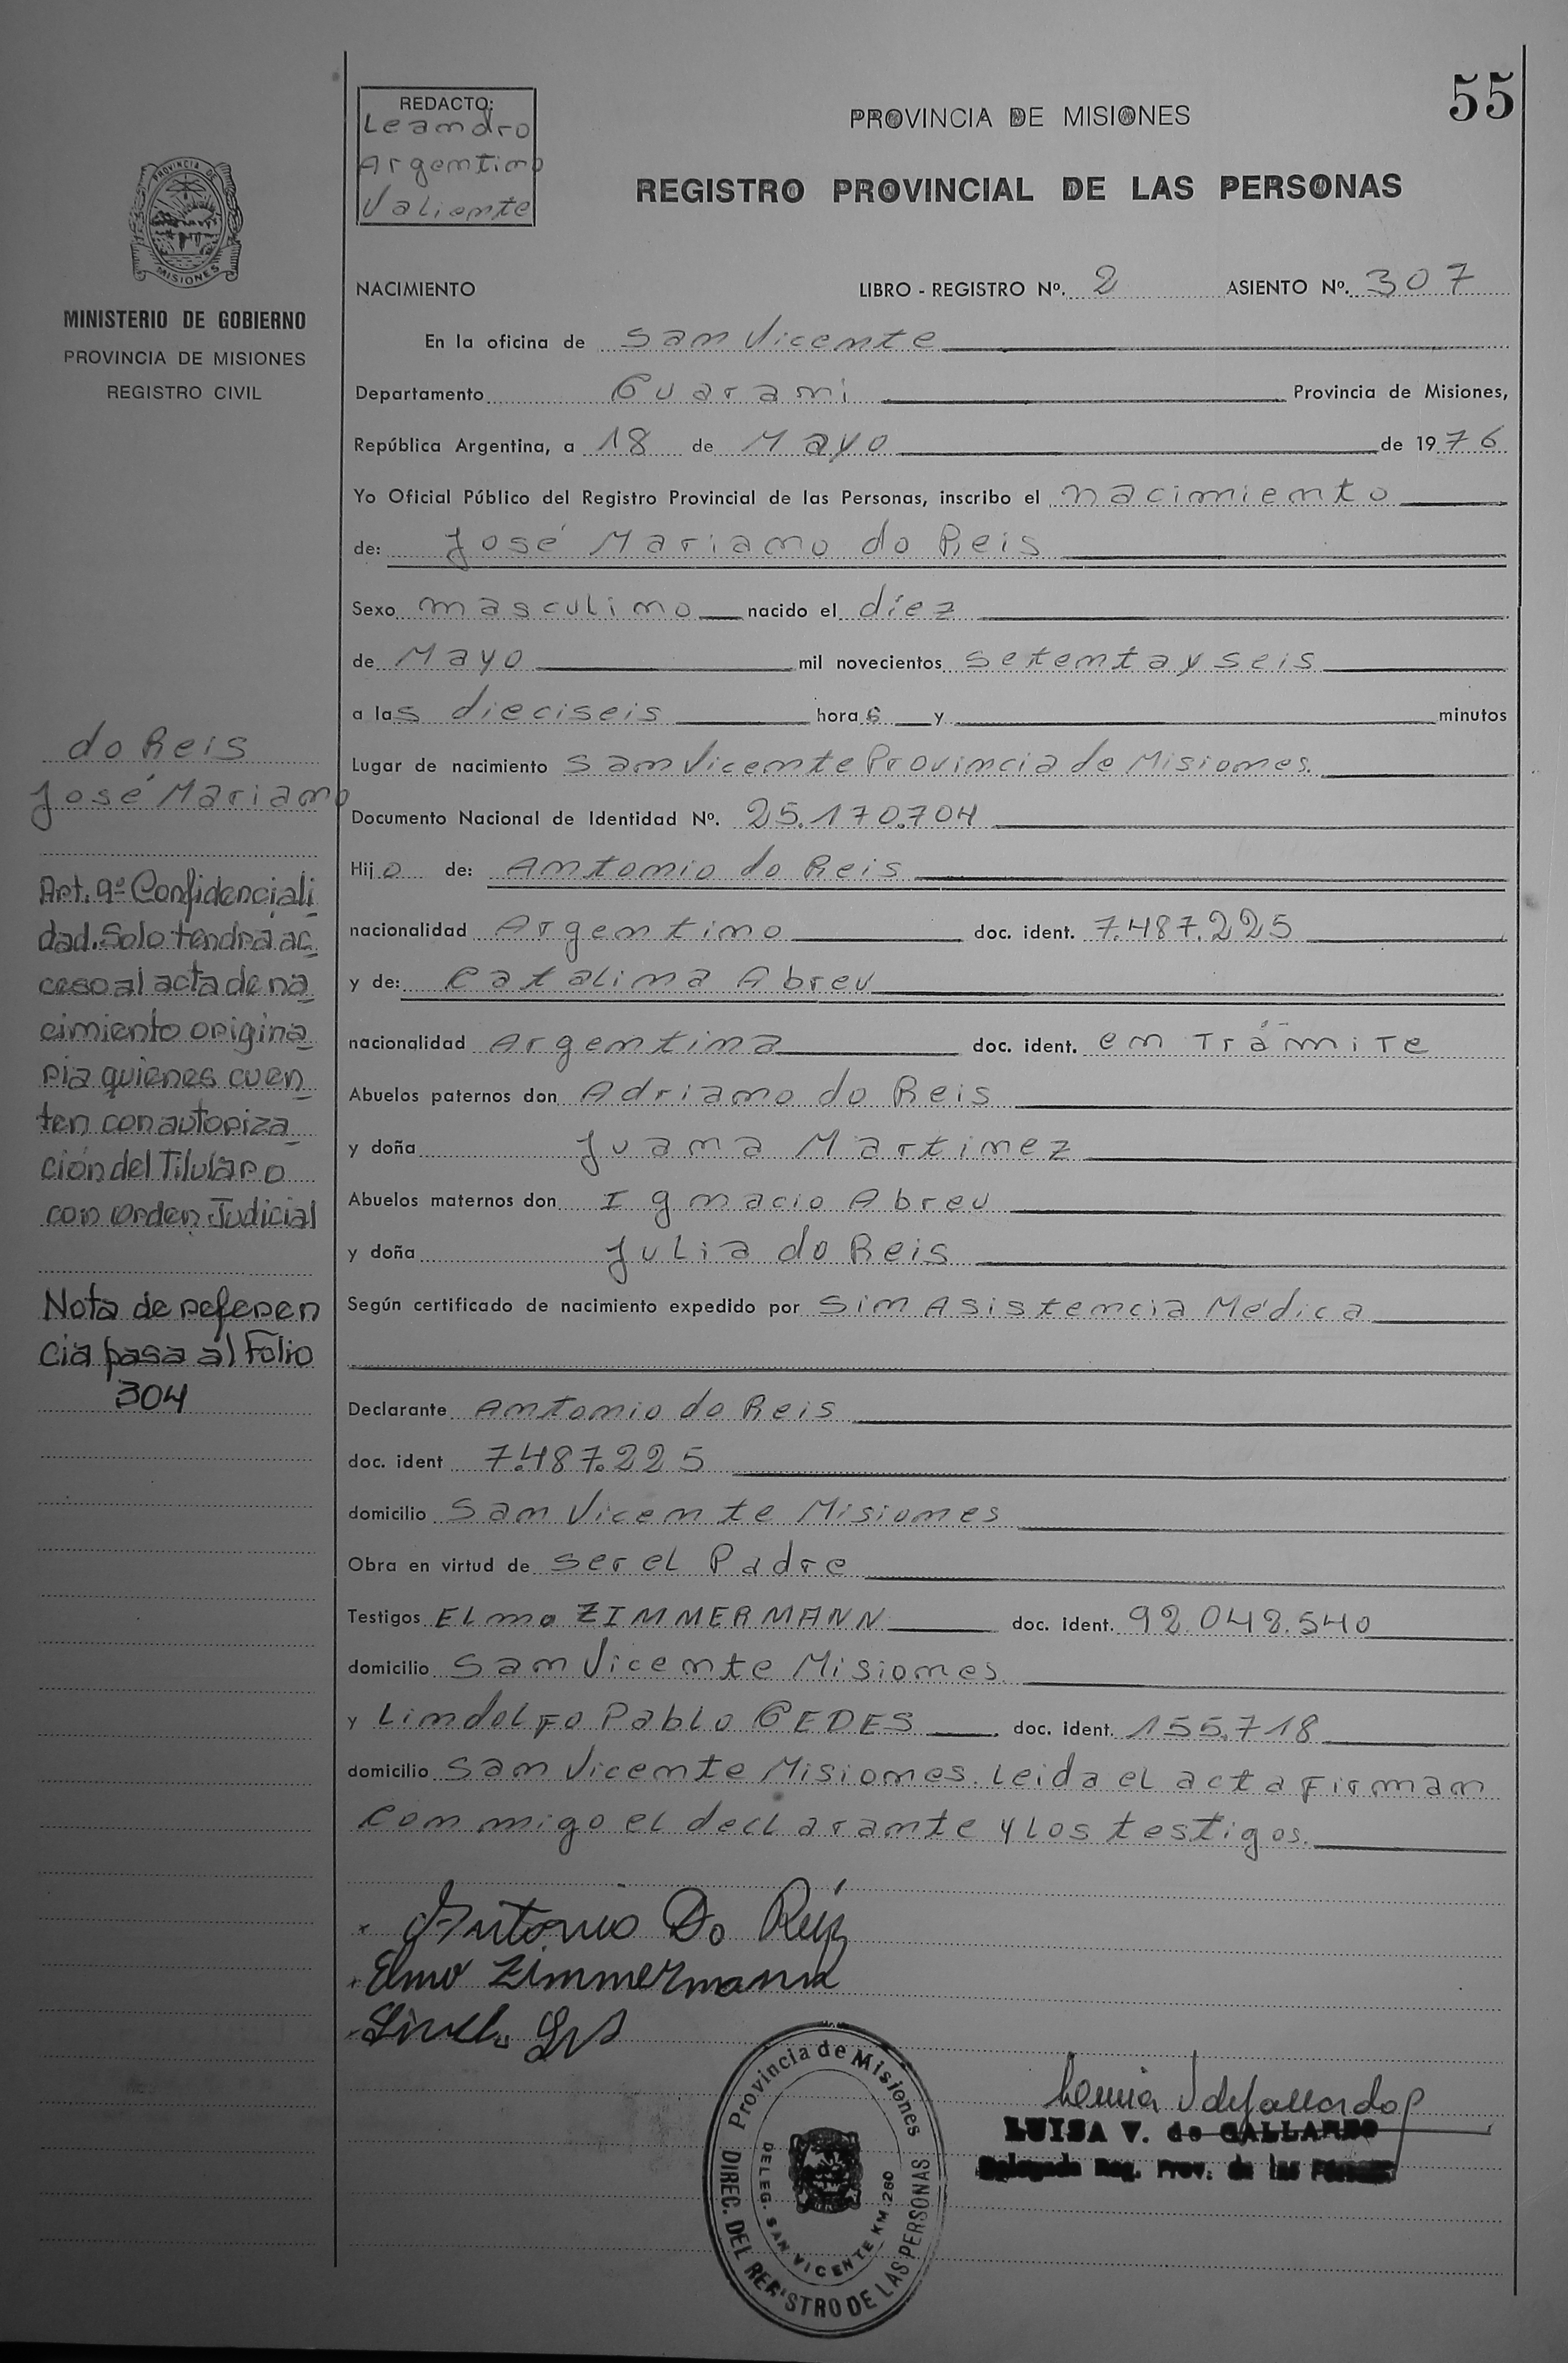 55
REDACTO:
Leandro
Argentino
Valiente
PROVINCIA DE MISIONES
REGISTRO PROVINCIAL DE LAS PERSONAS
PROVINCIA DE
MISIONES
MINISTERIO DE GOBIERNO
PROVINCIA DE MISIONES
REGISTRO CIVIL
NACIMIENTO LIBRO - REGISTRO Nº. 2 ASIENTO Nº. 307
En la oficina de San Vicente
Departamento Guarani Provincia de Misiones,
República Argentina, a 18 de Mayo de 1976
Yo Oficial Público del Registro Provincial de las Personas, inscribo el nacimiento
de: José Mariano do Reis
Sexo masculino nacido el diez
de Mayo mil novecientos setenta y seis
a las dieciseis horas y minutos
Lugar de nacimiento San Vicente Provincia de Misiones.
Documento Nacional de Identidad Nº. 25.170.704
Hijo de: Antonio do Reis
nacionalidad Argentino doc. ident. 7.487.225
y de: Catalina Abreu
nacionalidad Argentina doc. ident. en Trámite
Abuelos paternos don Adriano do Reis
y doña Juana Martinez
Abuelos maternos don Ignacio Abreu
y doña Julia do Reis
Según certificado de nacimiento expedido por Sin Asistencia Médica
Declarante Antonio do Reis
doc. ident 7.487.225
domicilio San Vicente Misiones
Obra en virtud de ser el Padre
Testigos Elmo ZIMMERMANN doc. ident. 92.042.540
domicilio San Vicente Misiones
y Lindolfo Pablo GEDES doc. ident. 155.718
domicilio San Vicente Misiones. Leida el acta Firman
conmigo el declarante y los testigos.
do Reis
José Mariano
Art. 9º Confidenciali
dad. Solo tendrá ac
ceso al acta de na
cimiento origina
ria quienes cuen
ten con autoriza
ción del Titular o
con Orden Judicial
Nota de referen
cia pasa al Folio
304
Antonio Do Reis
Elmo Zimmermann
Provincia de Misiones
DIREC. DEL REGISTRO DE LAS PERSONAS
DELEG. SAN VICENTE KM. 280
LUISA V. de GALLARDO
Delegada Reg. Prov. de las